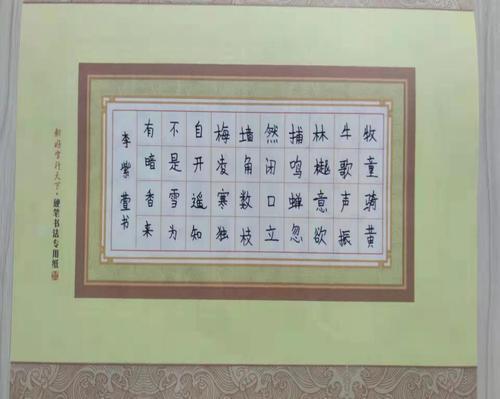 牧童骑黄
牛歌声振
林樾意欲
捕鸣蝉忽
然闭口立
墙角数枝
梅凌寒独
自开遥知
不是雪为
有暗香来
李紫萱书
好字行天下·硬笔书法专用纸